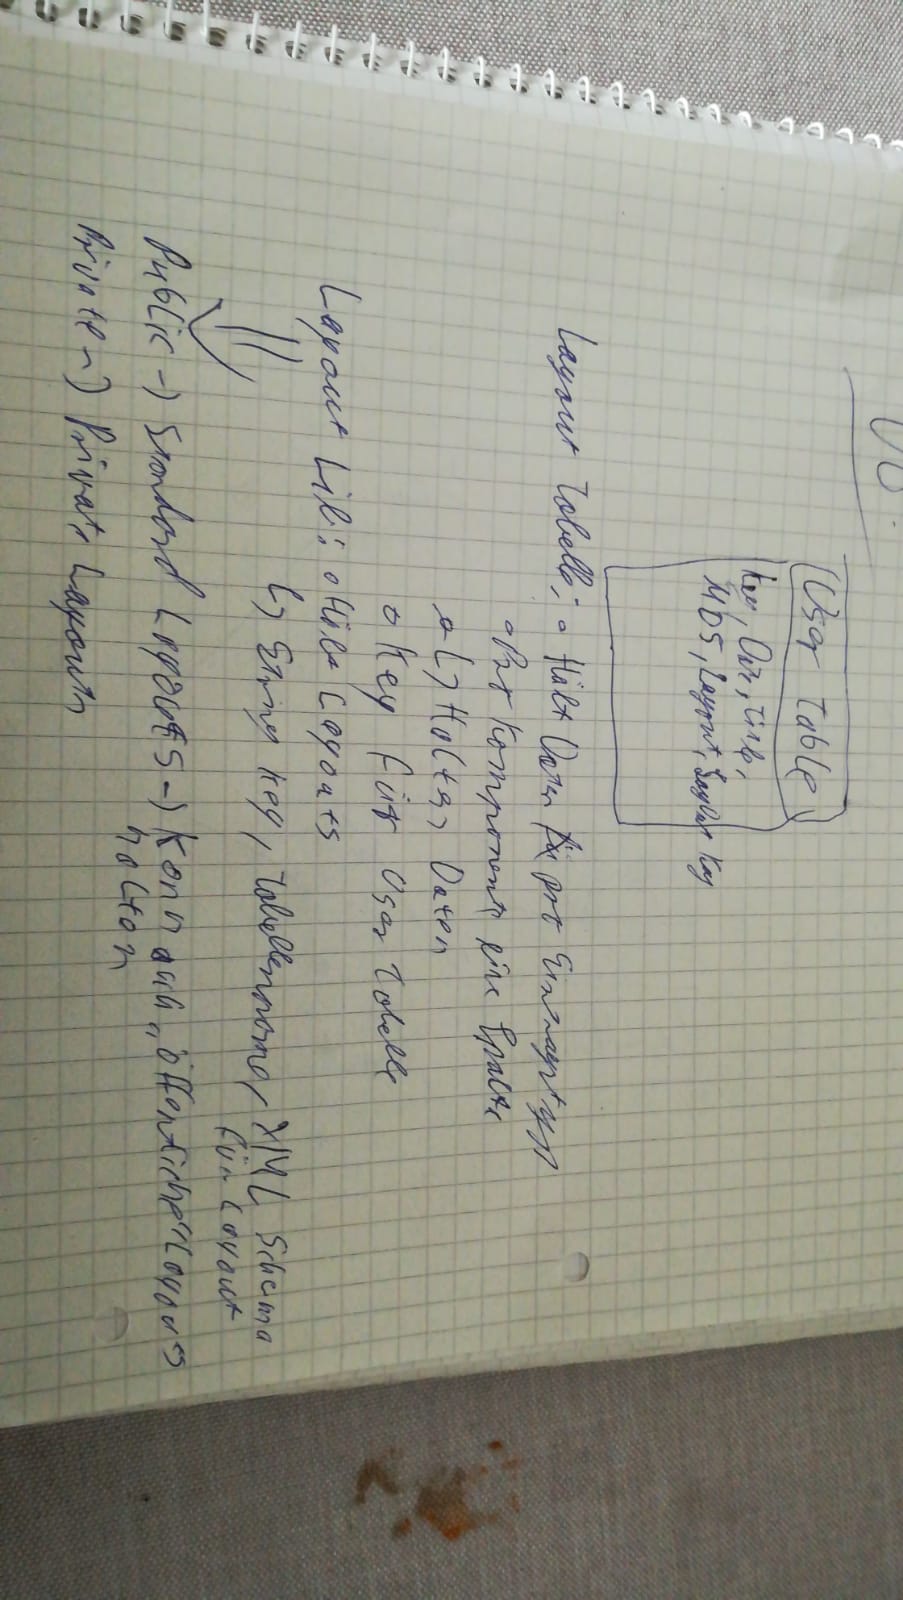 User Table
Key, Date, Title,
MD5, Layout, Layout Key
Layout Tabelle: Hält Daten pro Eintragstyp
Pro Komponente eine Spalte
Halten Daten
Key für User Tabelle
Layout Lib: Hält Layouts
String Key, Tabellenname, XML Schema
für Layout
Public -> Standard Layouts -> Kann auch „öffentliche“ Layouts
halten
Private -> Private Layouts